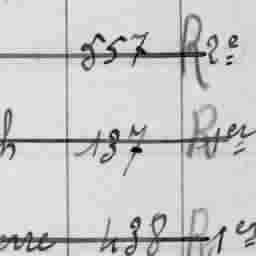 557 R 2e
h 137 R 1er
erre 438 R 1er